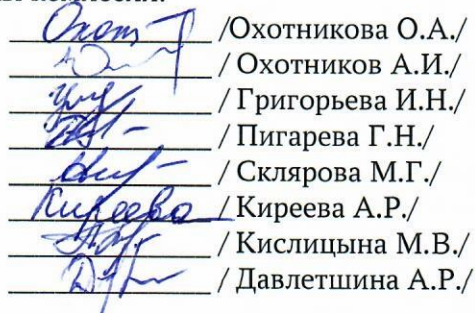 Охот /Охотникова О.А./
/ Охотников А.И./
/ Григорьева И.Н./
/ Пигарева Г.Н./
/ Склярова М.Г./
Киреева / Киреева А.Р./
/ Кислицына М.В./
/ Давлетшина А.Р./